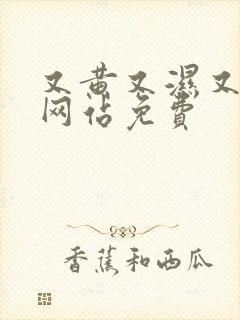 又黄又濕又
网站免費
香蕉和西瓜